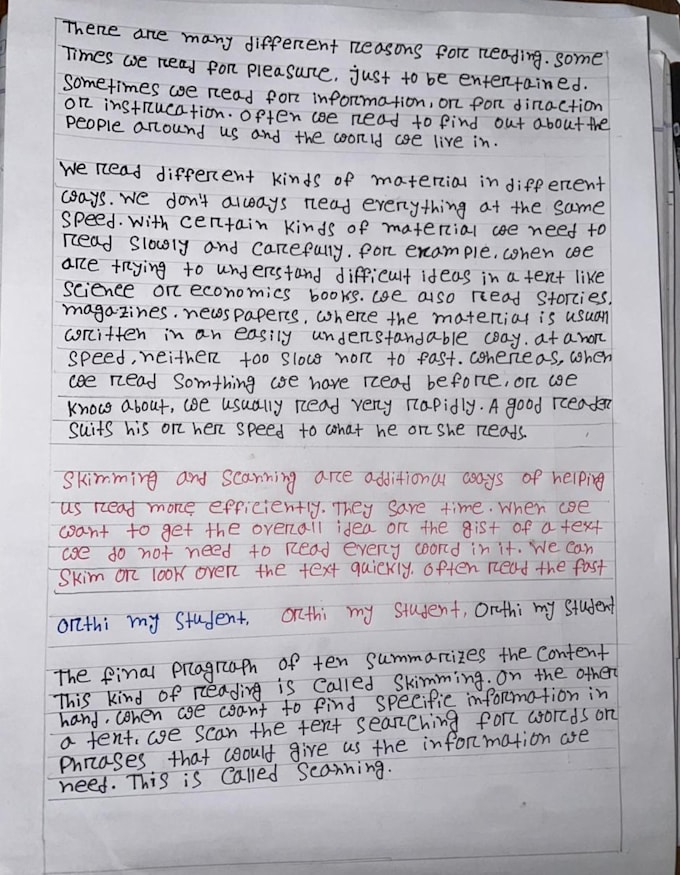 There are many different reasons for reading. some
times we read for pleasure, just to be entertained.
sometimes we read for information, or for diraction
or instrucation. often we read to find out about the
people around us and the world we live in.
We read different kinds of material in different
ways. we don't always read everything at the same
speed. with certain kinds of material we need to
read slowly and carefully. for example, when we
are trying to understand difficult ideas in a text like
science or economics books. we also read stories,
magazines. newspapers, where the material is usuall
written in an easily understandable way. at a nor
speed, neither too slow nor to fast. whereas, when
we read somthing we have read before, or we
know about, we usually read very rapidly. A good reader
suits his or her speed to what he or she reads.
Skimming and scanning are additional ways of helping
us read more efficiently. They save time. when we
want to get the overall idea or the gist of a text
we do not need to read every word in it. we can
skim or look over the text quickly. often read the fast
orthi my student, orthi my student, Orthi my student
The final pragraph of ten summarizes the content
This kind of reading is called skimming. on the other
hand, when we want to find specific information in
a text, we scan the text searching for words or
phrases that would give us the information we
need. This is called scanning.